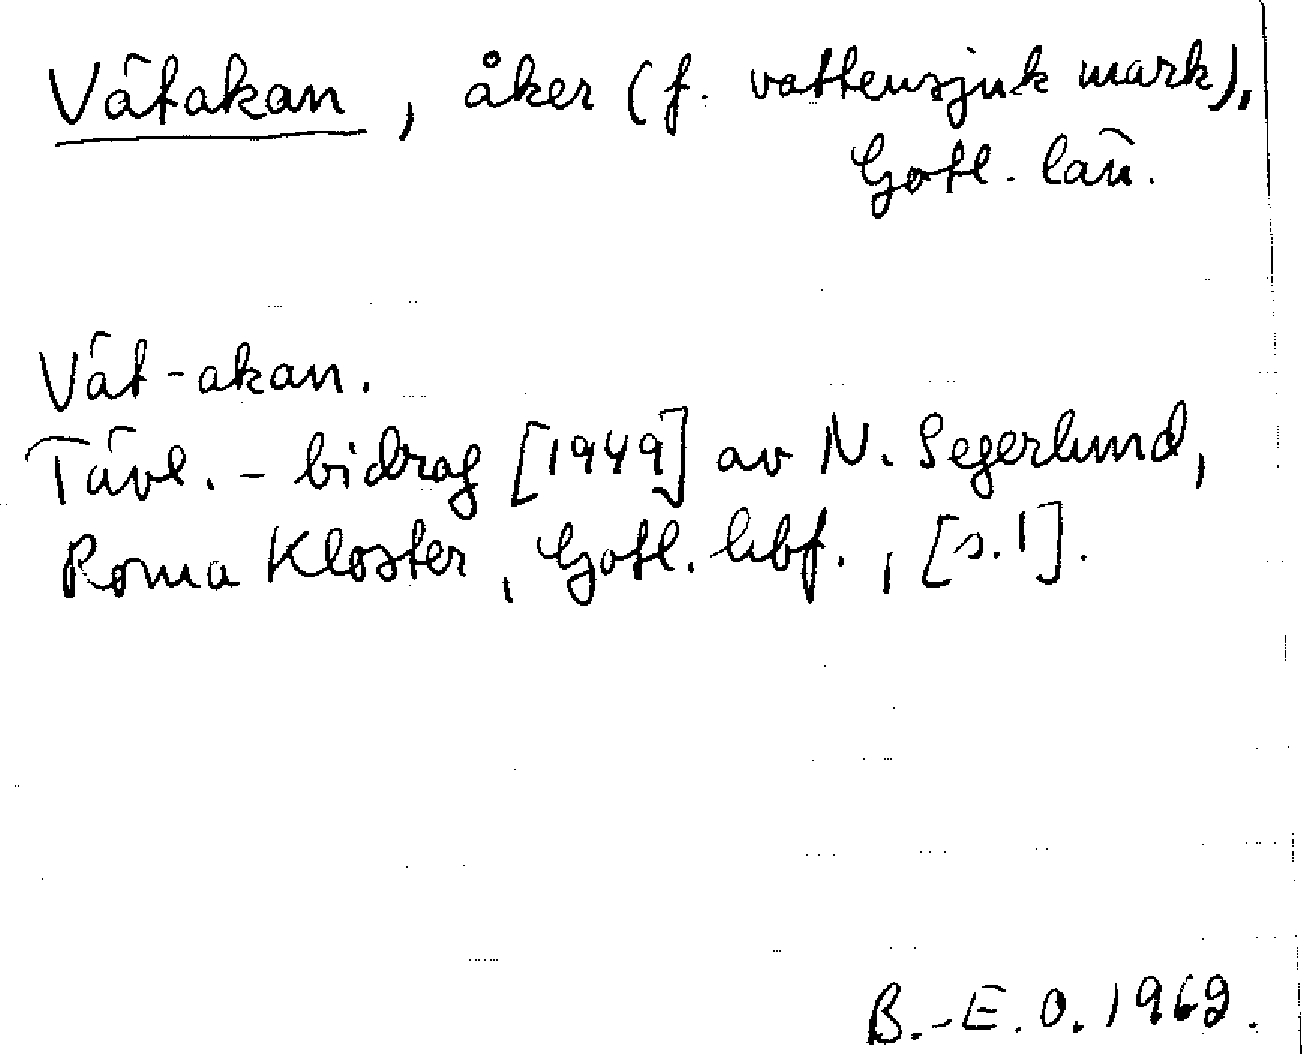 Vätakan, åker (f. vattensjuk mark),
Gotl. län.
Vät-akan.
Tävl.-bidrag [1949] av N. Segerlund,
Roma Kloster, Gotl. hbf., [s.1].
B.-E.O. 1969.